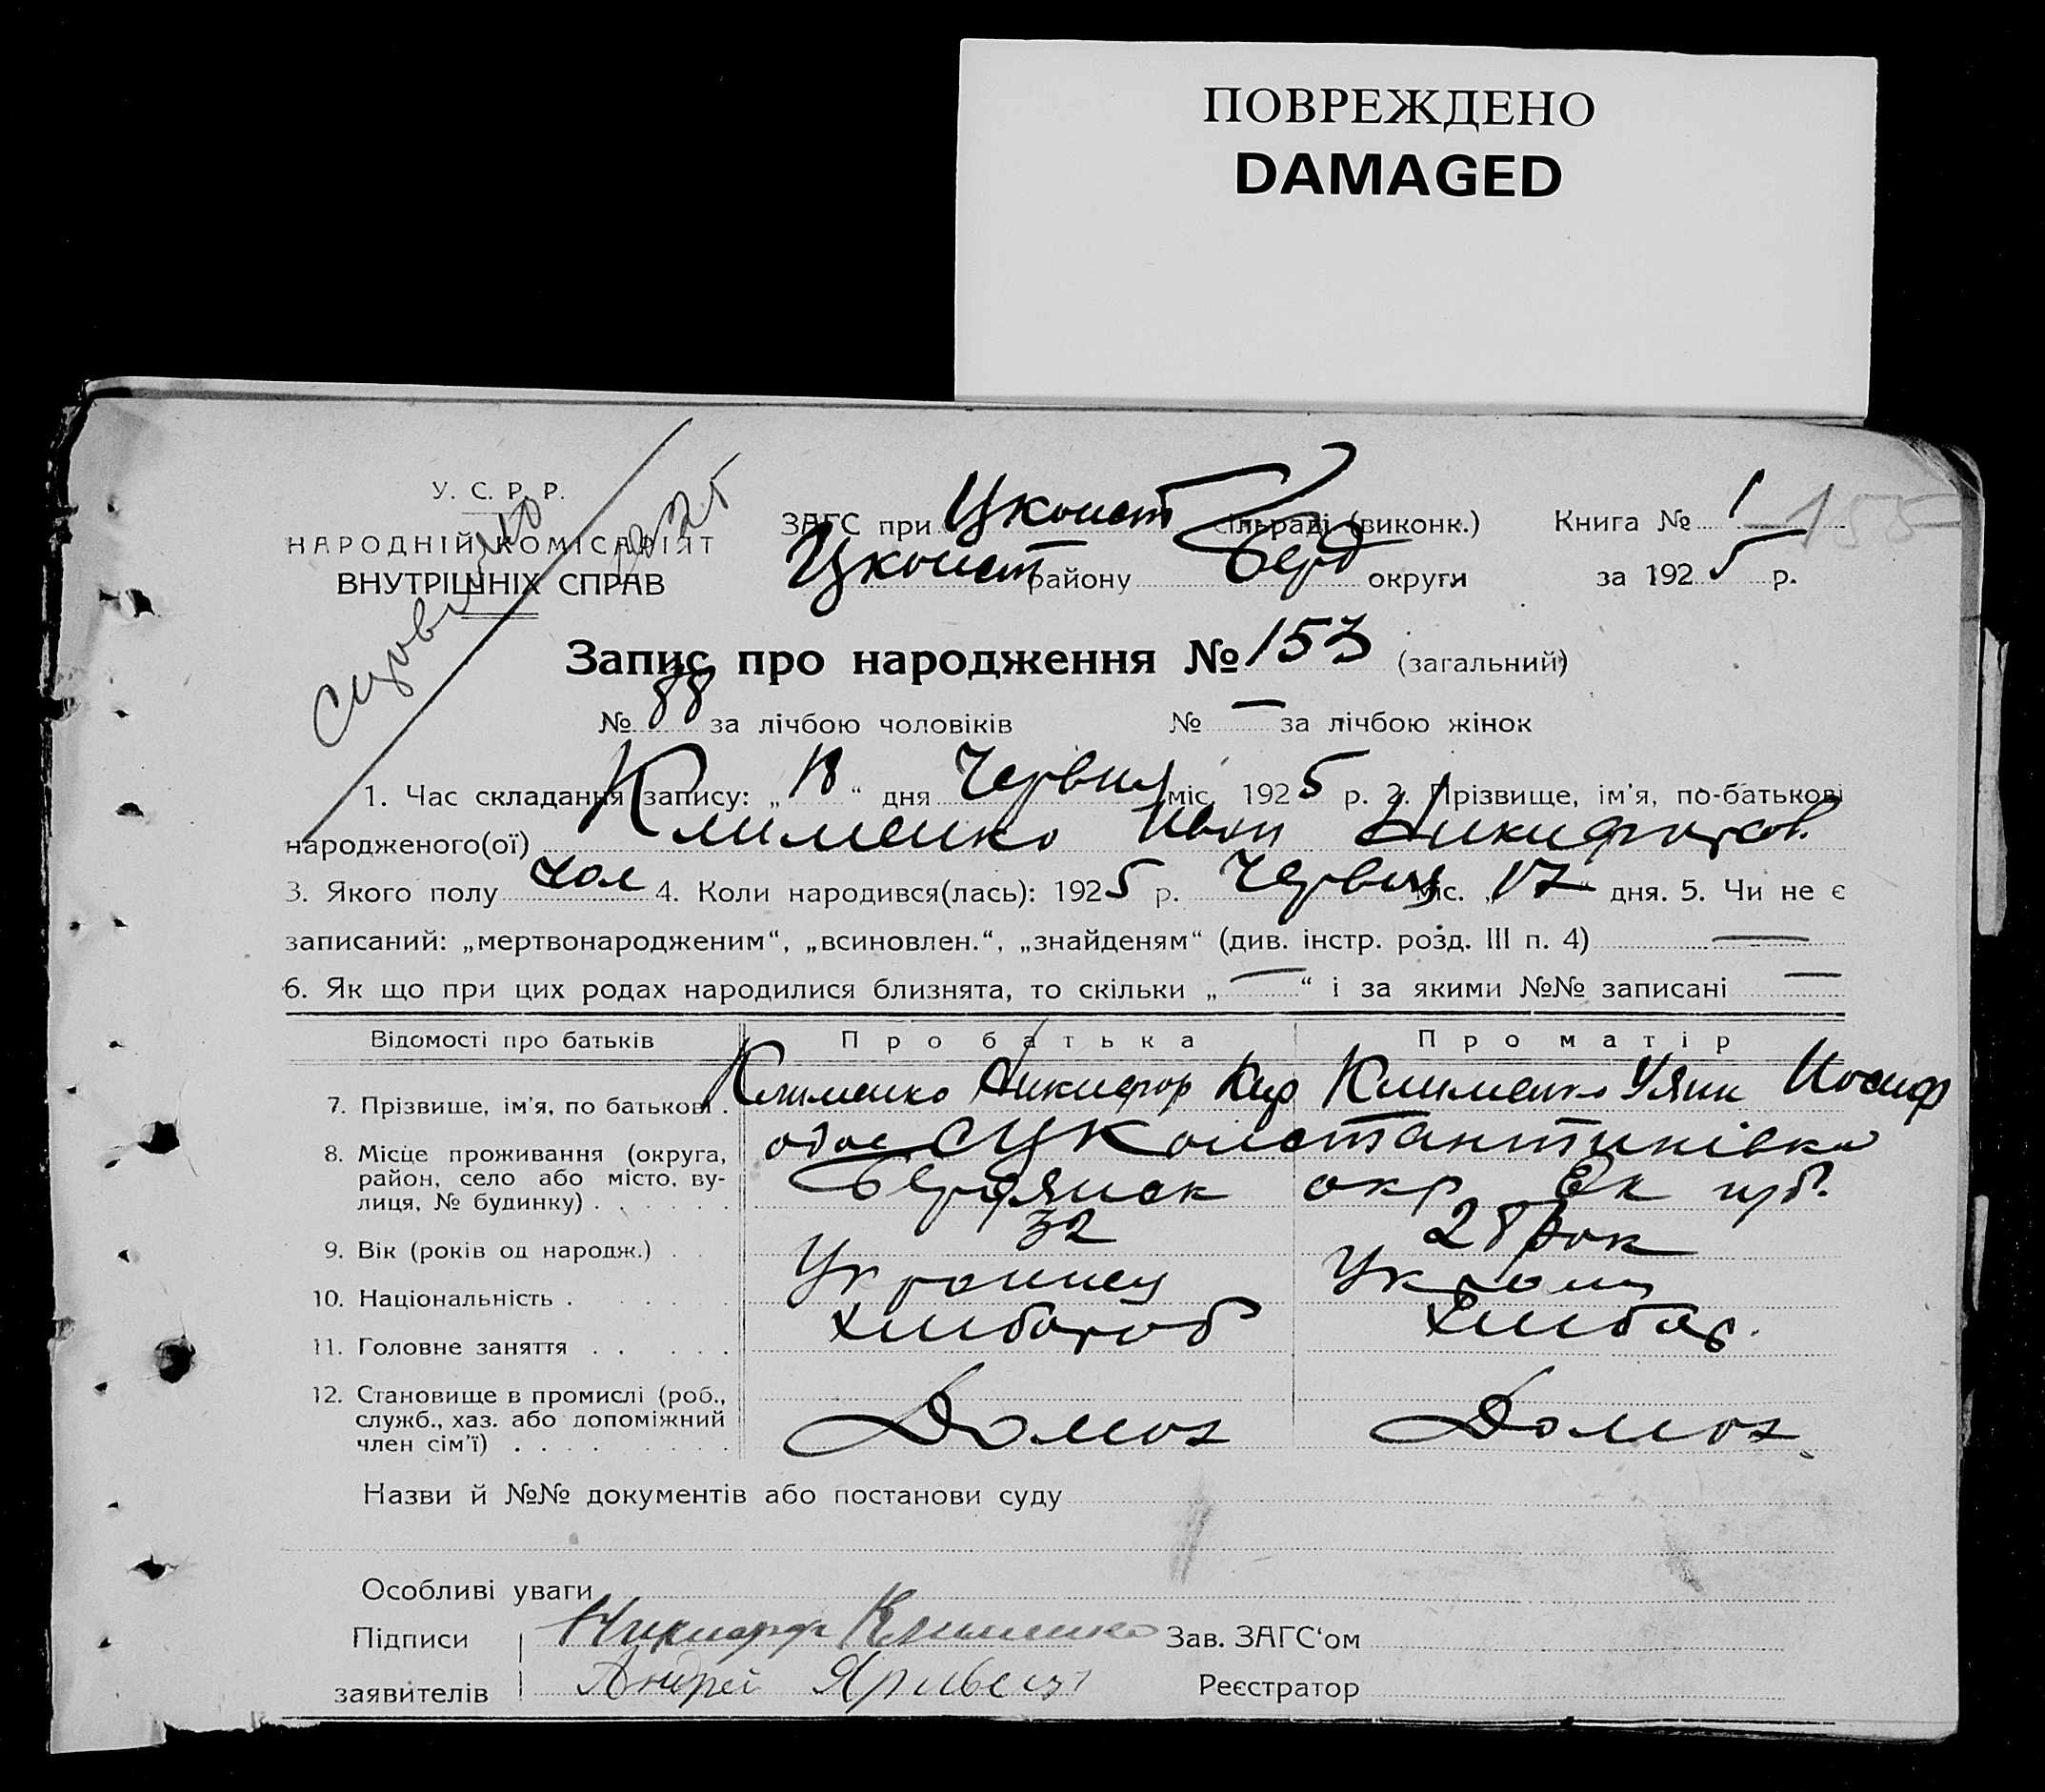 ПОВРЕЖДЕНО
DAMAGED
У. С. Р. Р.
НАРОДНІЙ КОМІСАРІЯТ
ВНУТРІШНІХ СПРАВ
ЗАГС при Цконст сільраді (виконк.) Книга № 1 155
Цконст району Берд округи за 1925 р.
Запис про народження № 153 (загальний)
№ 88 за лічбою чоловіків № — за лічбою жінок
1. Час складання запису: „18“ дня Червня міс. 1925 р. 2. Прізвище, ім'я, по-батькові
народженого(ої) Клименко Иван Никифоров.
3. Якого полу чол 4. Коли народився(лась): 1925 р. Червня міс. „17“ дня. 5. Чи не є
записаний: „мертвонародженим“, „всиновлен.“, „знайденям“ (див. інстр. розд. III п. 4) —
6. Як що при цих родах народилися близнята, то скільки „—“ і за якими №№ записані —
Відомості про батьків Про батька Про матір
7. Прізвище, ім'я, по батькові . Клименко Никифор Кир Клименко Уляни Иосиф
8. Місце проживання (округа, район, село або місто, вулиця, № будинку) . . . . . . обое с Цконстантинівка
Бердянск окр Ек губ.
9. Вік (років од народж.) . . 32 28 рок
10. Національність . . . . . Українец Україн
11. Головне заняття . . . . . хлибороб хлибор.
12. Становище в промислі (роб., служб., хаз. або допоміжний член сім'ї) . . . . . . . . Домох Домох.
Назви й №№ документів або постанови суду
Особливі уваги
Підписи Никифор Клименко Зав. ЗАГС'ом
заявителів Андрей Реєстратор